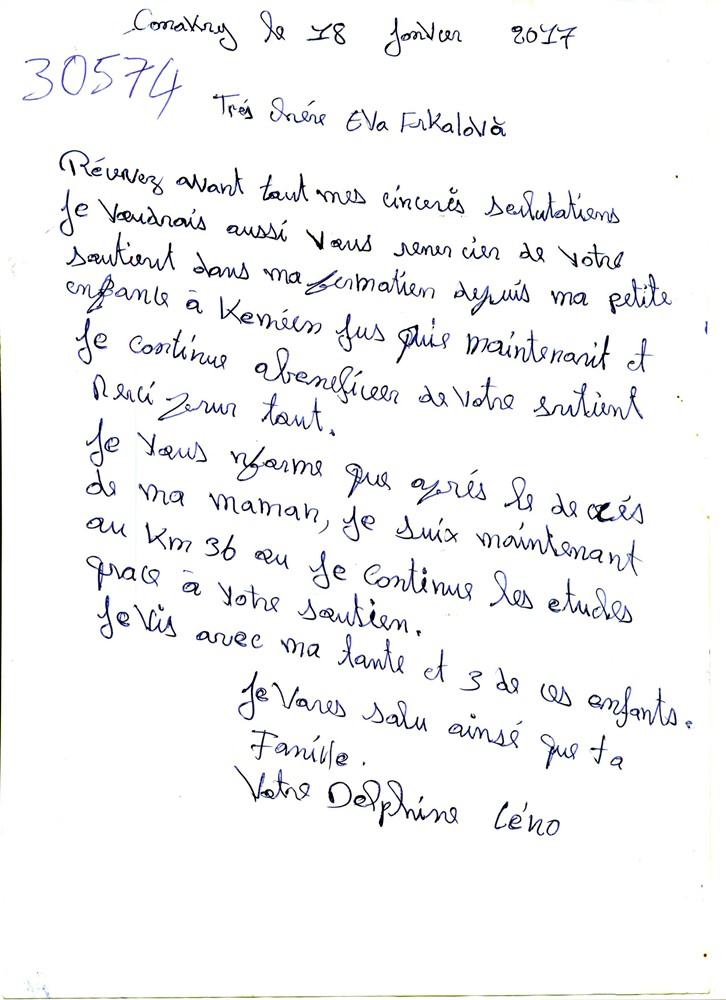 Conakry le 18 Janvier 2017
30574
Trés chére Eva Erkalovà
Recevez avant tout mes cincerès salutations
Je Voudrais aussi Vous remercier de Votre
soutient dans ma formation depuis ma petite
enfance à jus maintenanit et
Je continue abeneficier de Votre sutient
Merci pour tout.
Je Vous nforme que aprés le de cés
de ma maman, je suix maintenant
au Km 36 ou je continue les etudes
grace à Votre soutien.
Je Vis avec ma tante et 3 de ces enfants.
Je Vous salu ainsé que ta
Famille.
Votre Delphine Céno